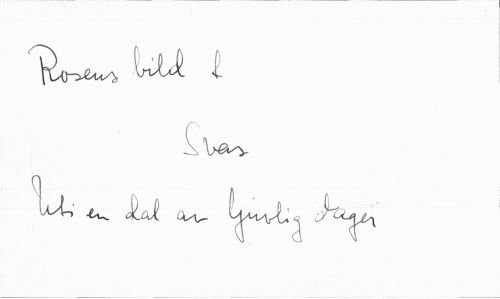 Rosens bild &
Svar
Uti en dal av ljuvlig dager